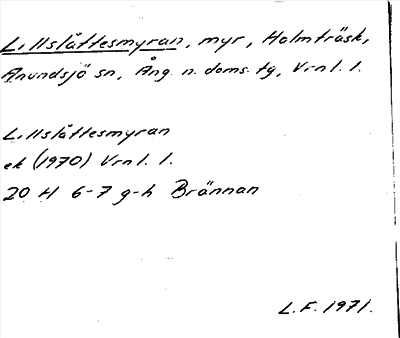 Lillslåttesmyran, myr, Holmträsk,
Anundsjö sn, Ång. n. doms. tg, Vrnl. 1.
Lillslåttesmyran
ek (1970) Vrnl. 1.
20 H 6-7 g-h Brännan
L.F. 1971.